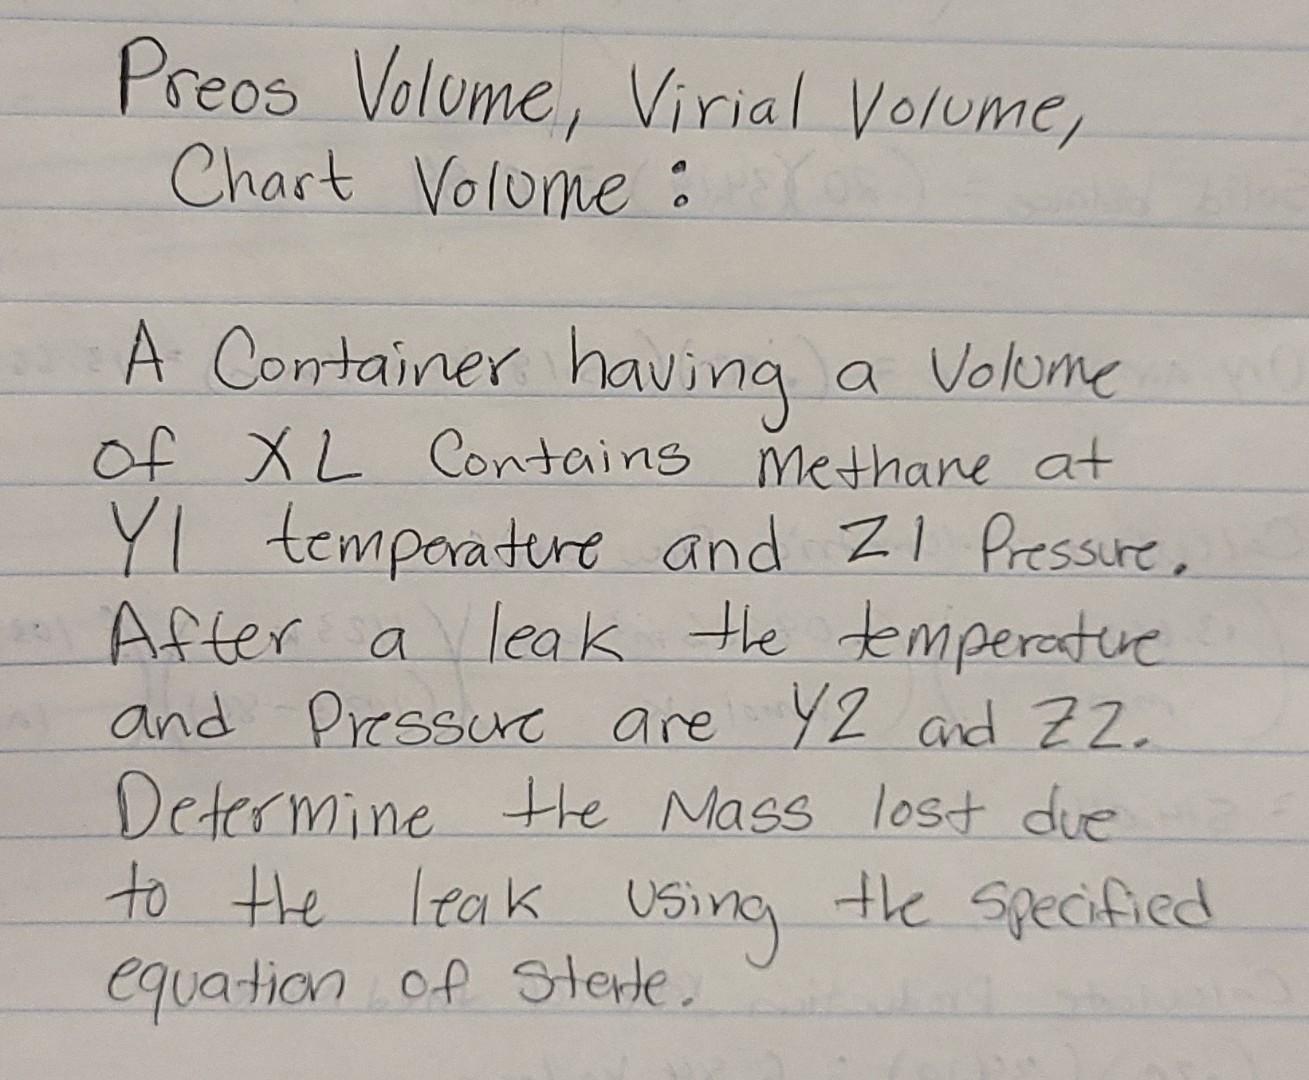 Preos Volume, Virial Volume,
Chart Volume :
A Container having a Volume
of XL Contains Methane at
Y1 temperature and Z1 Pressure.
After a leak the temperature
and Pressure are Y2 and Z2.
Determine the Mass lost due
to the leak using the specified
equation of state.